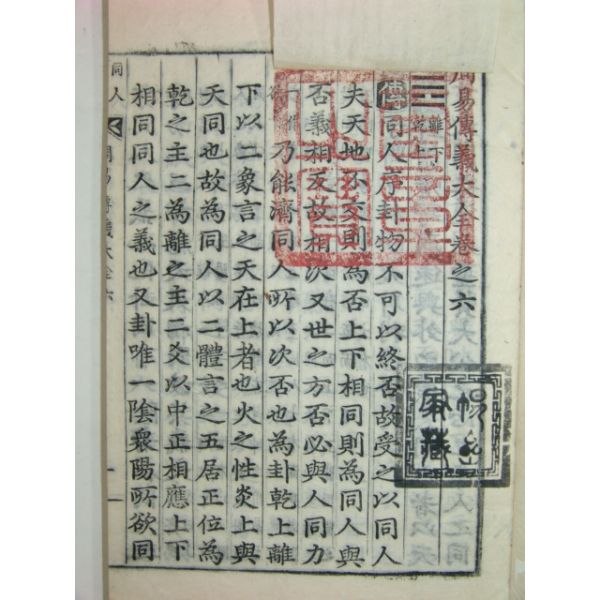 周易傳義大全卷之六
離下
乾上
同人序卦物不可以終否故受之以同人
夫天地不交則為否上下相同則為同人與
否義相反故相次又世之方否必與人同力
乃能濟同人所以次否也為卦乾上離
下以二象言之天在上者也火之性炎上與
天同也故為同人以二體言之五居正位為
乾之主二為離之主二爻以中正相應上下
相同同人之義也又卦唯一陰衆陽所欲同
同人
周易傳義大全六
家藏